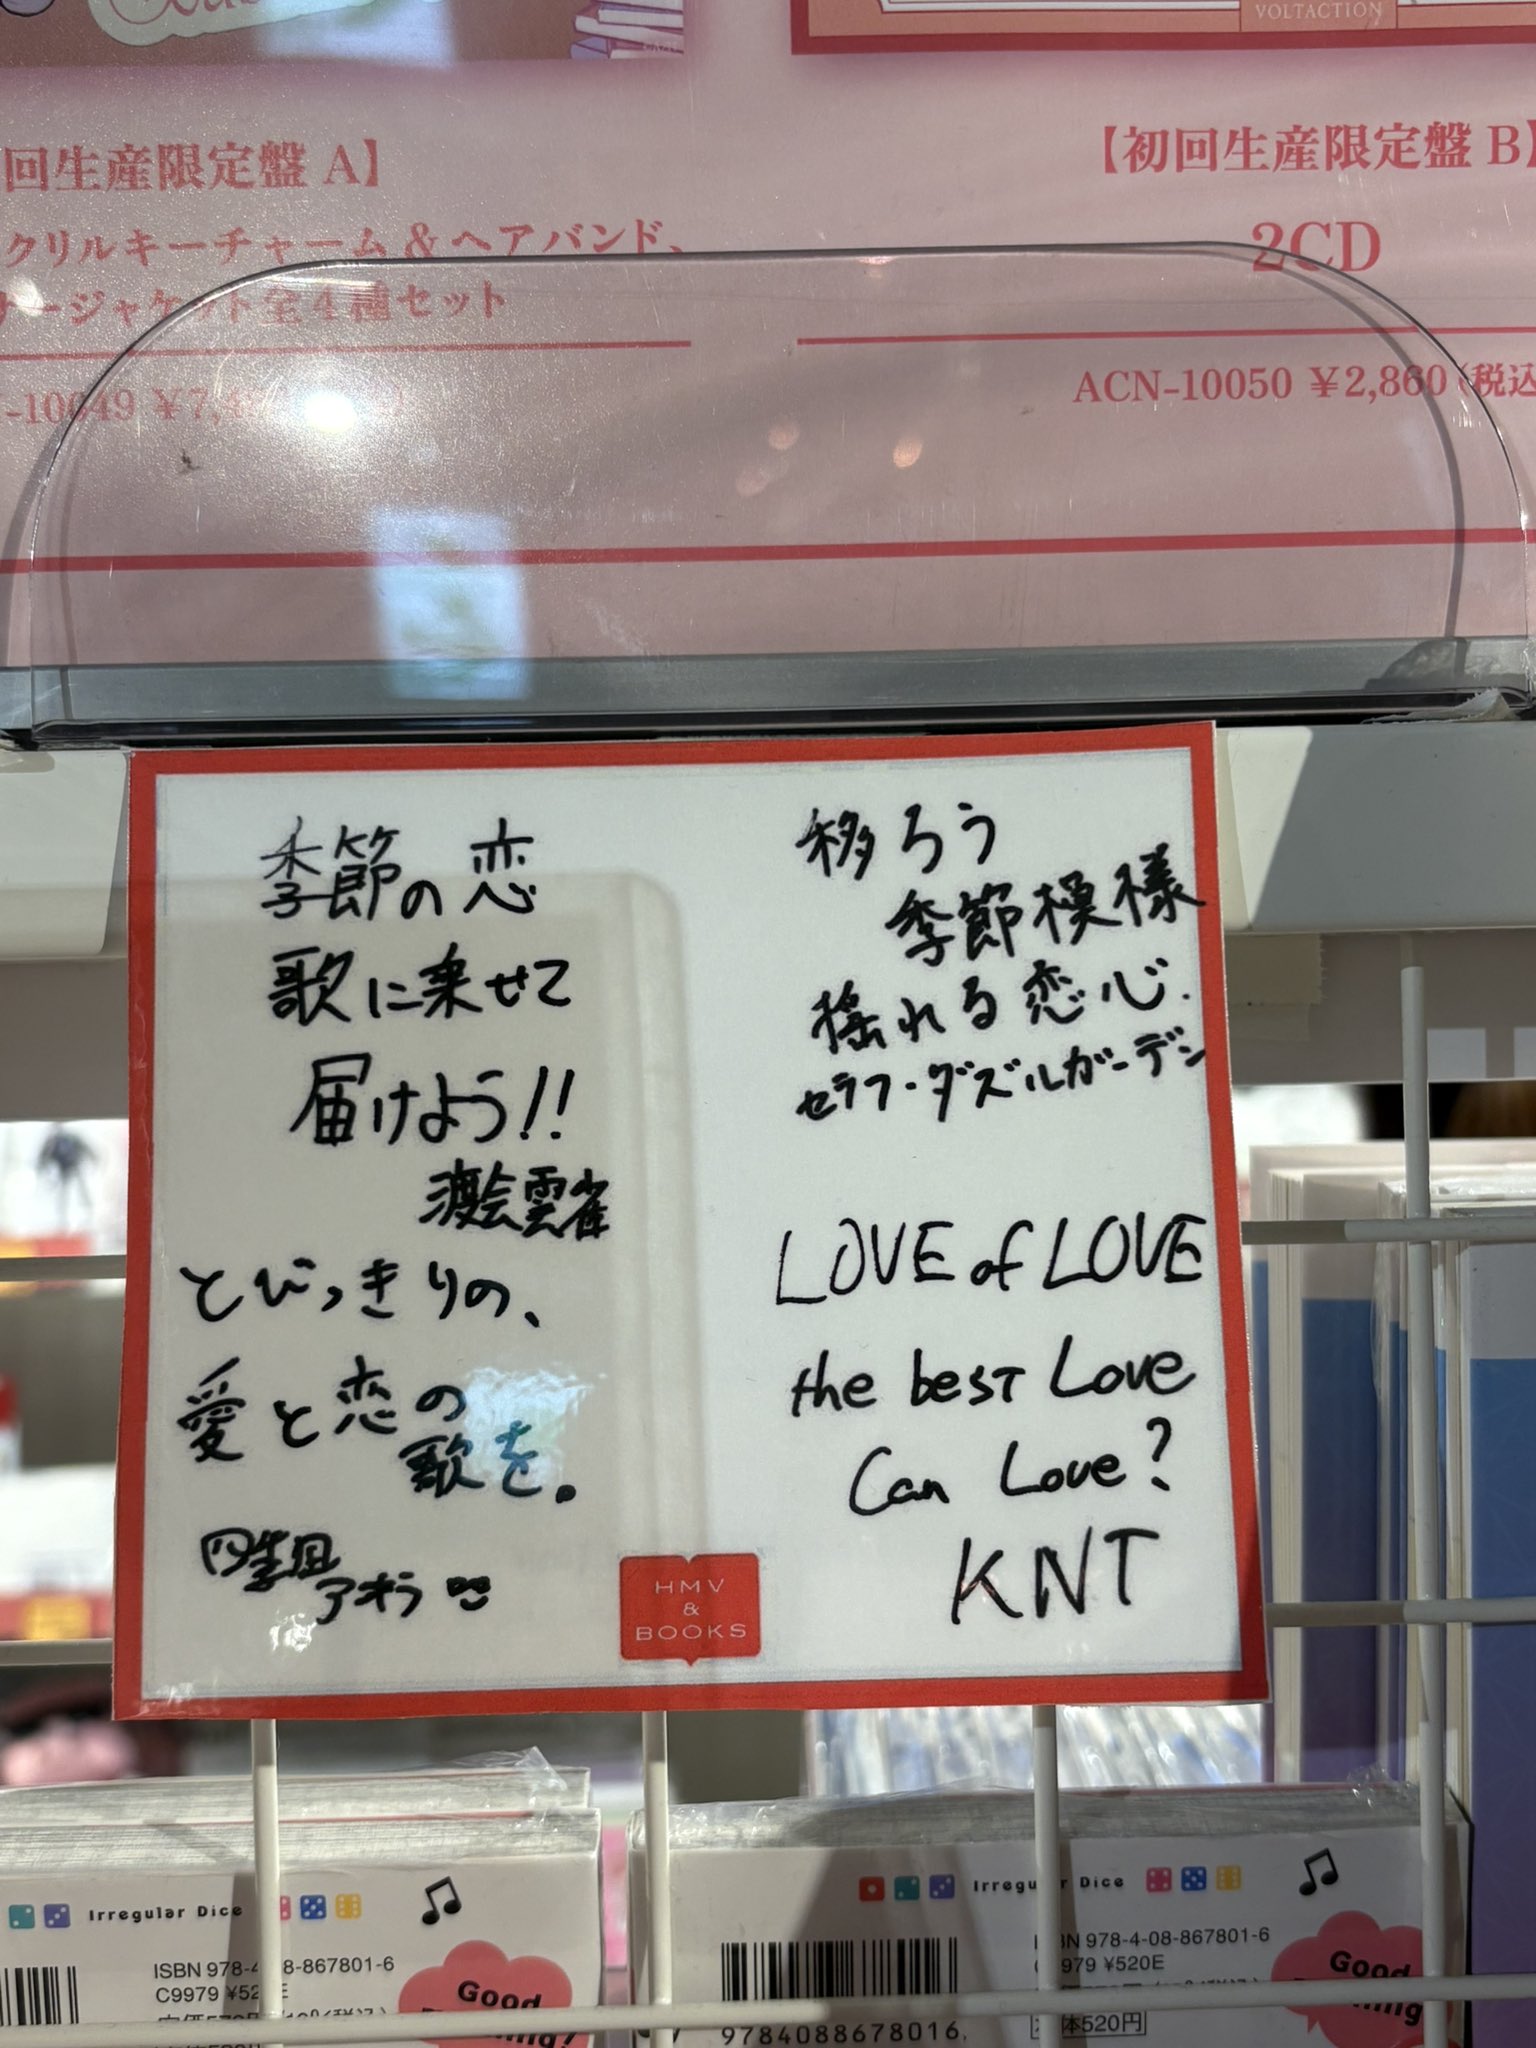 VOLTACTION
回生産限定盤 A】
クリルキーチャーム&ヘアバンド、
ナージャケット全4種セット
-10049 ¥7,4
【初回生産限定盤 B】
2CD
ACN-10050 ¥2,860(税込
季節の恋
歌に乗せて
届けよう!!
渡会雲雀
とびっきりの、
愛と恋の
歌を。
四季凪
アキラ
移ろう
季節模様
揺れる恋心.
セラフ・ダズルガーデン
LOVE of LOVE
the besT Love
Can Love?
KNT
HMV
&
BOOKS
Irregular Dice
ISBN 978-4-08-867801-6
C9979 ¥520E
Good
Irregular Dice
ISBN 978-4-08-867801-6
C9979 ¥520E
本体520円
Good
9784088678016